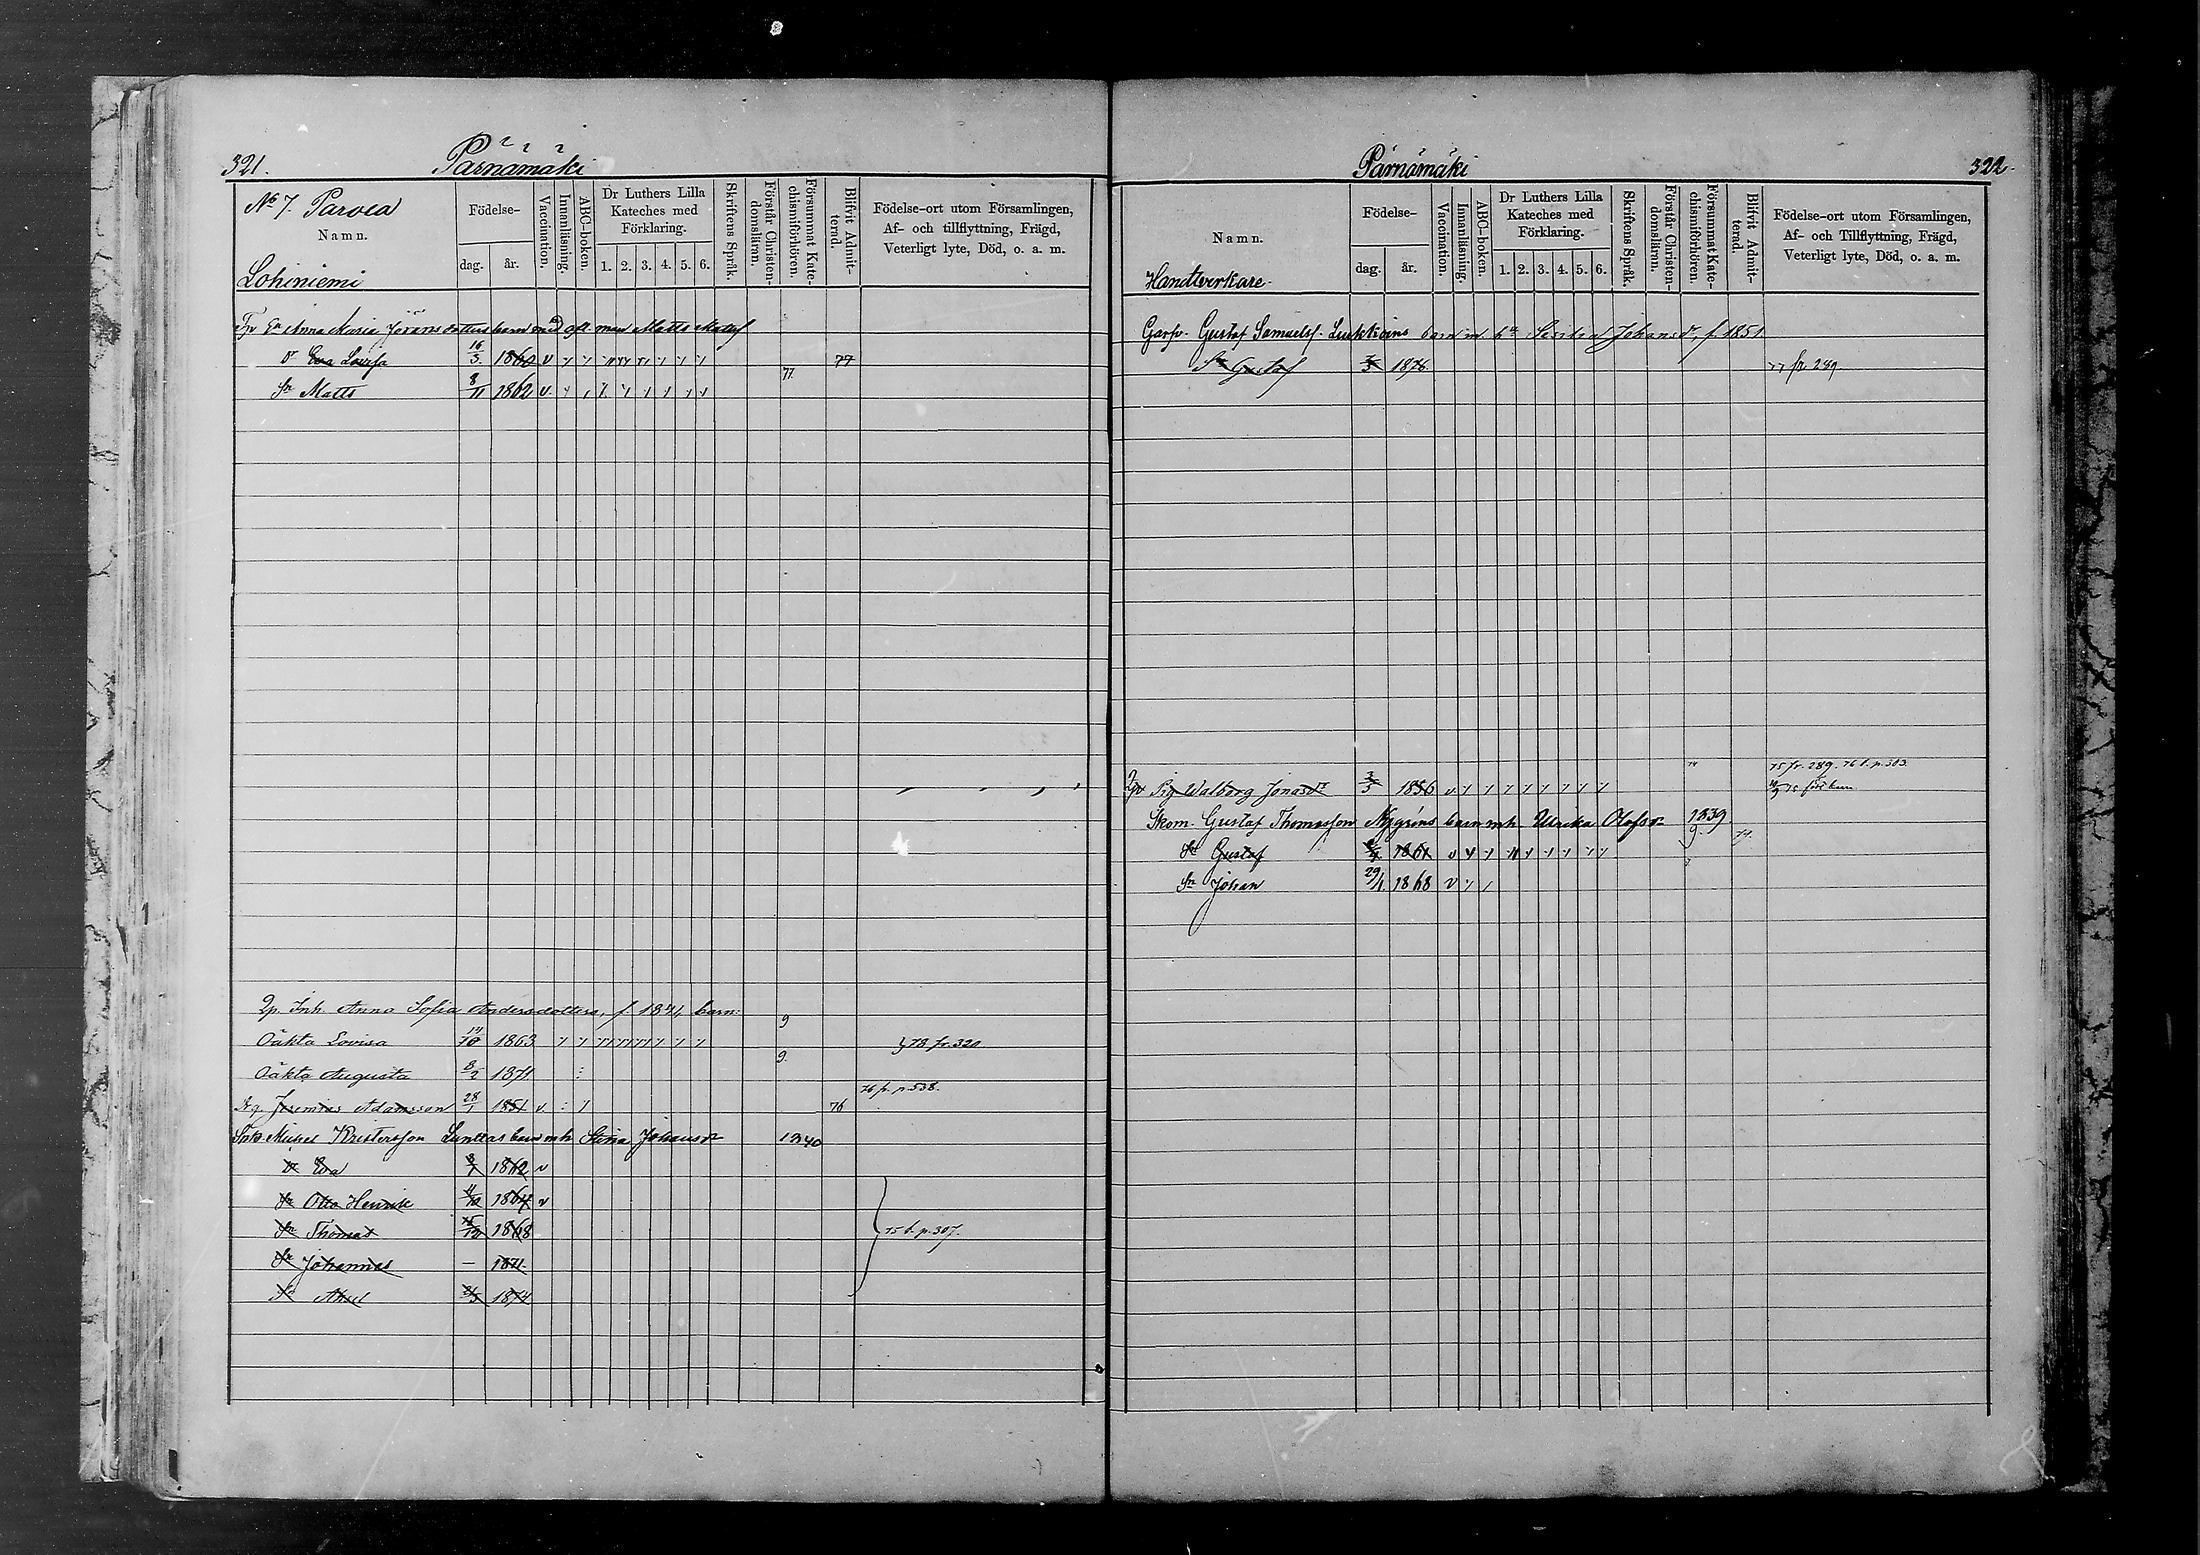 321.
Pärnämäki
No 7. Parvea
Namn.
Lohiniemi
Födelse-
dag.
år.
Vaccination.
Innanläsning.
ABC-boken.
Dr Luthers Lilla
Kateches med
Förklaring.
1. 2. 3. 4. 5. 6.
Skriftens Språk.
Förstår Christen-
domsläran.
Försummat Kate-
chismiförhören.
Blifvit Admit-
terad.
Födelse-ort utom Församlingen,
Af- och tillflyttning, Frägd,
Veterligt lyte, Död, o. a. m.
Anna Maria Jöransdotters barn med aft. man Matts Matsf
Dr Eva Lovisa 16/3 1860 v 77
77
Sn Matts 8/11 1862 v.
Inh. Anna Sofia Andersdotters, f. 1841, barn:
9
Oäkta Lovisa 14/10 1863 } 78 fr. 320
9.
Oäkta Augusta 8/2 1871
76 fr. p. 538.
Drg. Jeremias Adamsson 28/1 1851 v. 76
Michel Kristersson barn mh Stina Johansdr 1840
Dr Eva 1862 v
Sn Otto Henrik 1864 v
Sn Thomas 1868 } 75 t. p. 307.
Sn Johannes — 1871
Sn Axel 1874
Pärnämäki
322.
Namn.
Handtverkare.
Födelse-
dag.
år.
Vaccination.
Innanläsning.
ABC-boken.
Dr Luthers Lilla
Kateches med
Förklaring.
1. 2. 3. 4. 5. 6.
Skriftens Språk.
Förstår Christen-
domsläran.
Försummat Kate-
chismiförhören.
Blifvit Admit-
terad.
Födelse-ort utom Församlingen,
Af- och Tillflyttning, Frägd,
Veterligt lyte, Död, o. a. m.
Gustaf Samuelsf. barn m. Johansdr, f. 1851
Sn Gustaf 1876. 77 fr. 289
75 fr. 289. 76 t. p. 303.
Pig Walborg Jonasdr 1856 v
Skom. Gustaf Thomasson Nygrens barn mh. Ulrika Olofsdr 1839
9.
Sn Gustaf 1861 v
Sn Johan 29/1 1868 v